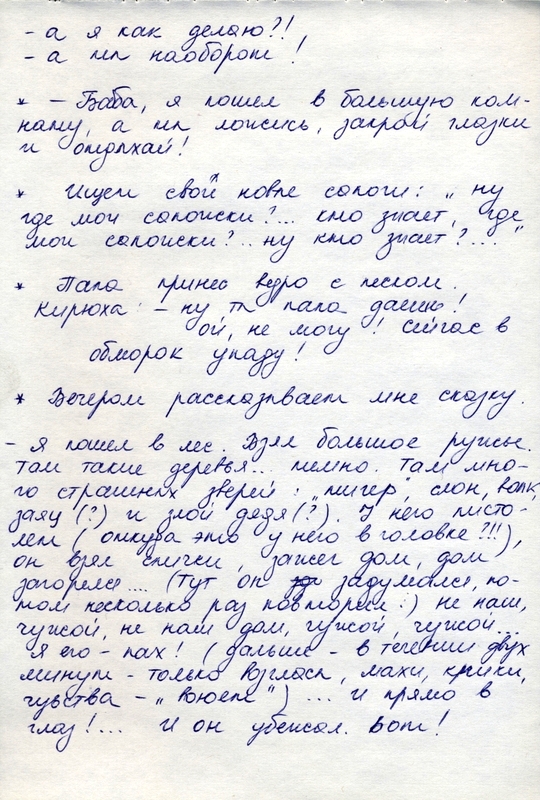 - а я как делаю?!
- а ты наоборот!
* - Баба, я пошел в большую ком-
нату, а ты ложись, закрой глазки
и отдыхай!
* Ищет свой новые сапоги: „ну
где мои сапожки?... кто знает, где
мои сапожки?.. ну кто знает?..."
* Папа принес ведро с песком.
Кирюха: - ну ты папа даешь!
ой, не могу! сейчас в
обморок упаду!
* Вечером рассказывает мне сказку.
- Я пошел в лес. Взял большое ружье.
Там такие деревья... темно. Там мно-
го страшных зверей: „тигер", слон, волк,
заяц (?) и злой дядя (?). У него писто-
лет (откуда это у него в головке?!!),
он взял спички, зажег дом, дом
загорелся.... (тут он задумался, по-
том несколько раз повторил:) не наш,
чужой, не наш дом, чужой, чужой...
Я его - пах! (дальше - в течении двух
минут - только возгласы, махи, крики,
чувства - „воюет") ... и прямо в
глаз!... И он убежал. Вот!